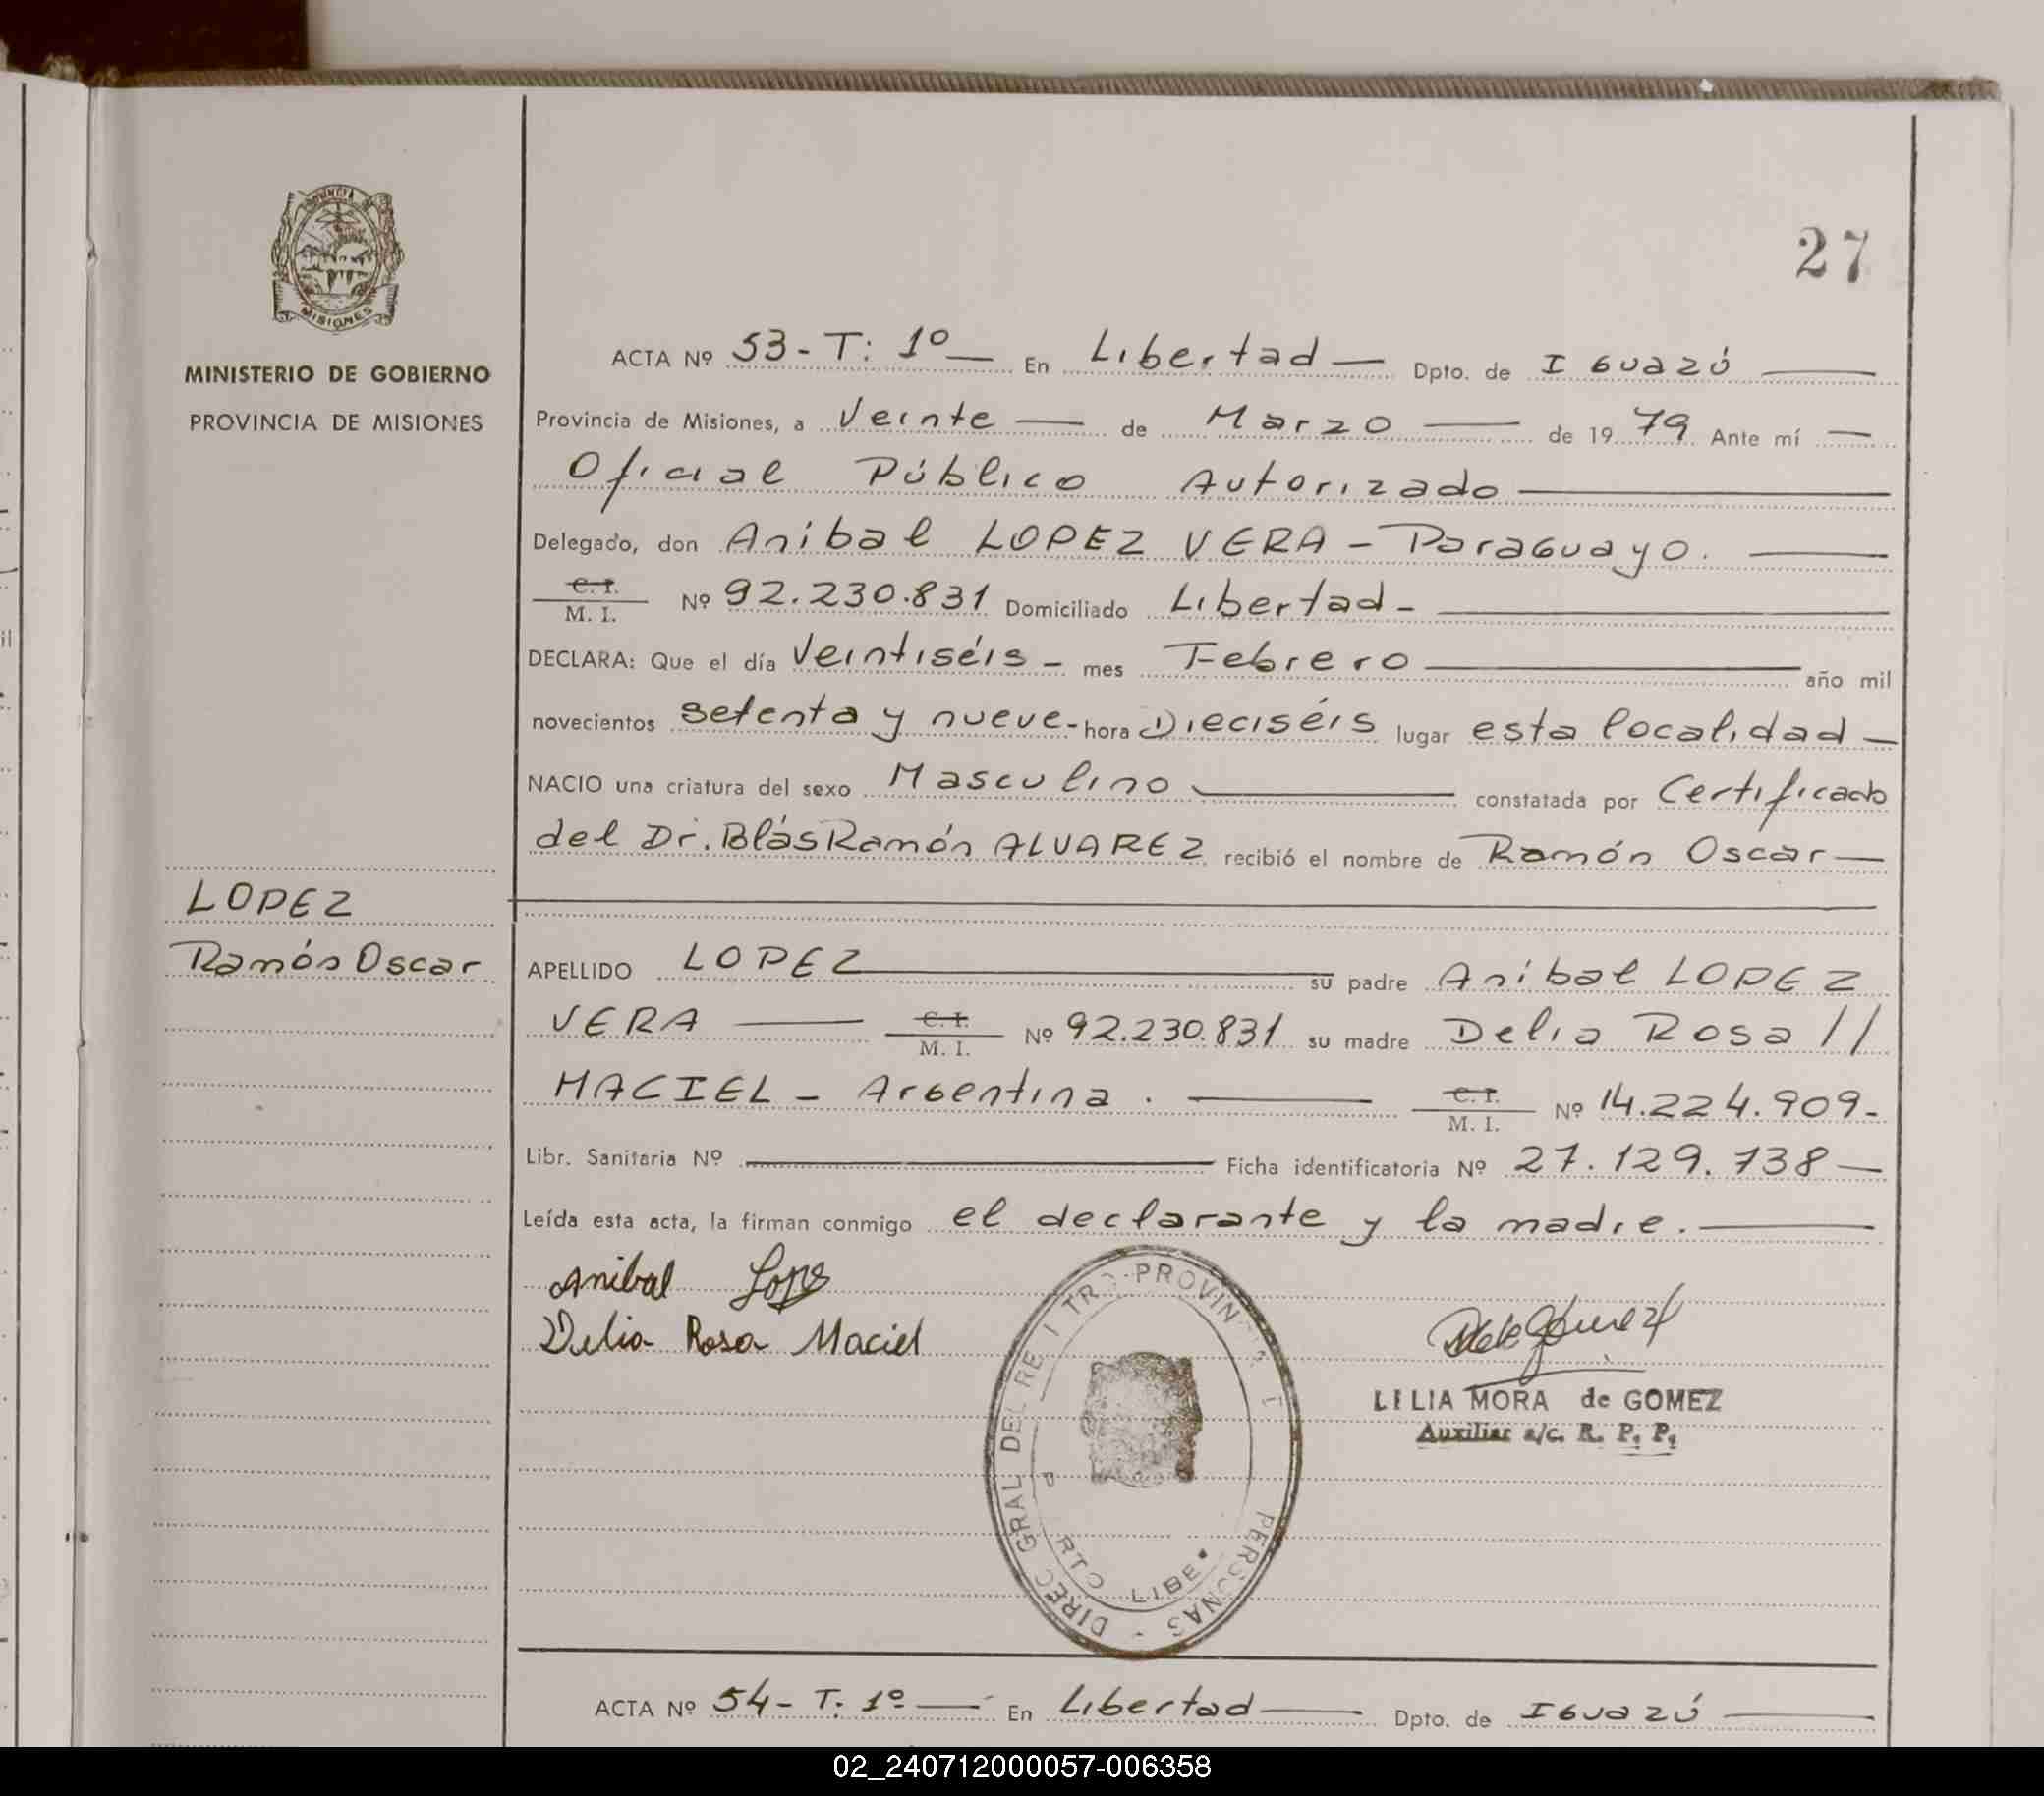 27
MISIONES
MINISTERIO DE GOBIERNO
PROVINCIA DE MISIONES
ACTA Nº 53 - T: 1º — En Libertad — Dpto. de Iguazú —
Provincia de Misiones, a Veinte — de Marzo — de 1979 Ante mí —
Oficial Público Autorizado —
Delegado, don Aníbal LOPEZ VERA - Paraguayo. —
C. I.
M. I. Nº 92.230.831 Domiciliado Libertad - —
DECLARA: Que el día Veintiséis - mes Febrero — año mil
novecientos setenta y nueve - hora Dieciséis lugar esta localidad —
NACIO una criatura del sexo Masculino — constatada por Certificado
del Dr. Blás Ramón ALVAREZ recibió el nombre de Ramón Oscar —
LOPEZ
Ramón Oscar
APELLIDO LOPEZ — su padre Aníbal LOPEZ
VERA — C. I. M. I. Nº 92.230.831 su madre Delia Rosa //
MACIEL - Argentina . — C. I. M. I. Nº 14.224.909-
Libr. Sanitaria Nº — Ficha identificatoria Nº 27.129.738 —
Leída esta acta, la firman conmigo el declarante y la madre. —
Anibal Lopez
Delia Rosa Maciel
LILIA MORA de GOMEZ
Auxiliar a/c. R. P. P.
DIREC GRAL DEL RE TRO PROVIN PERSONAS -
RTO LIBE
ACTA Nº 54 - T. 1º — En Libertad — Dpto. de Iguazú —
02_240712000057-006358